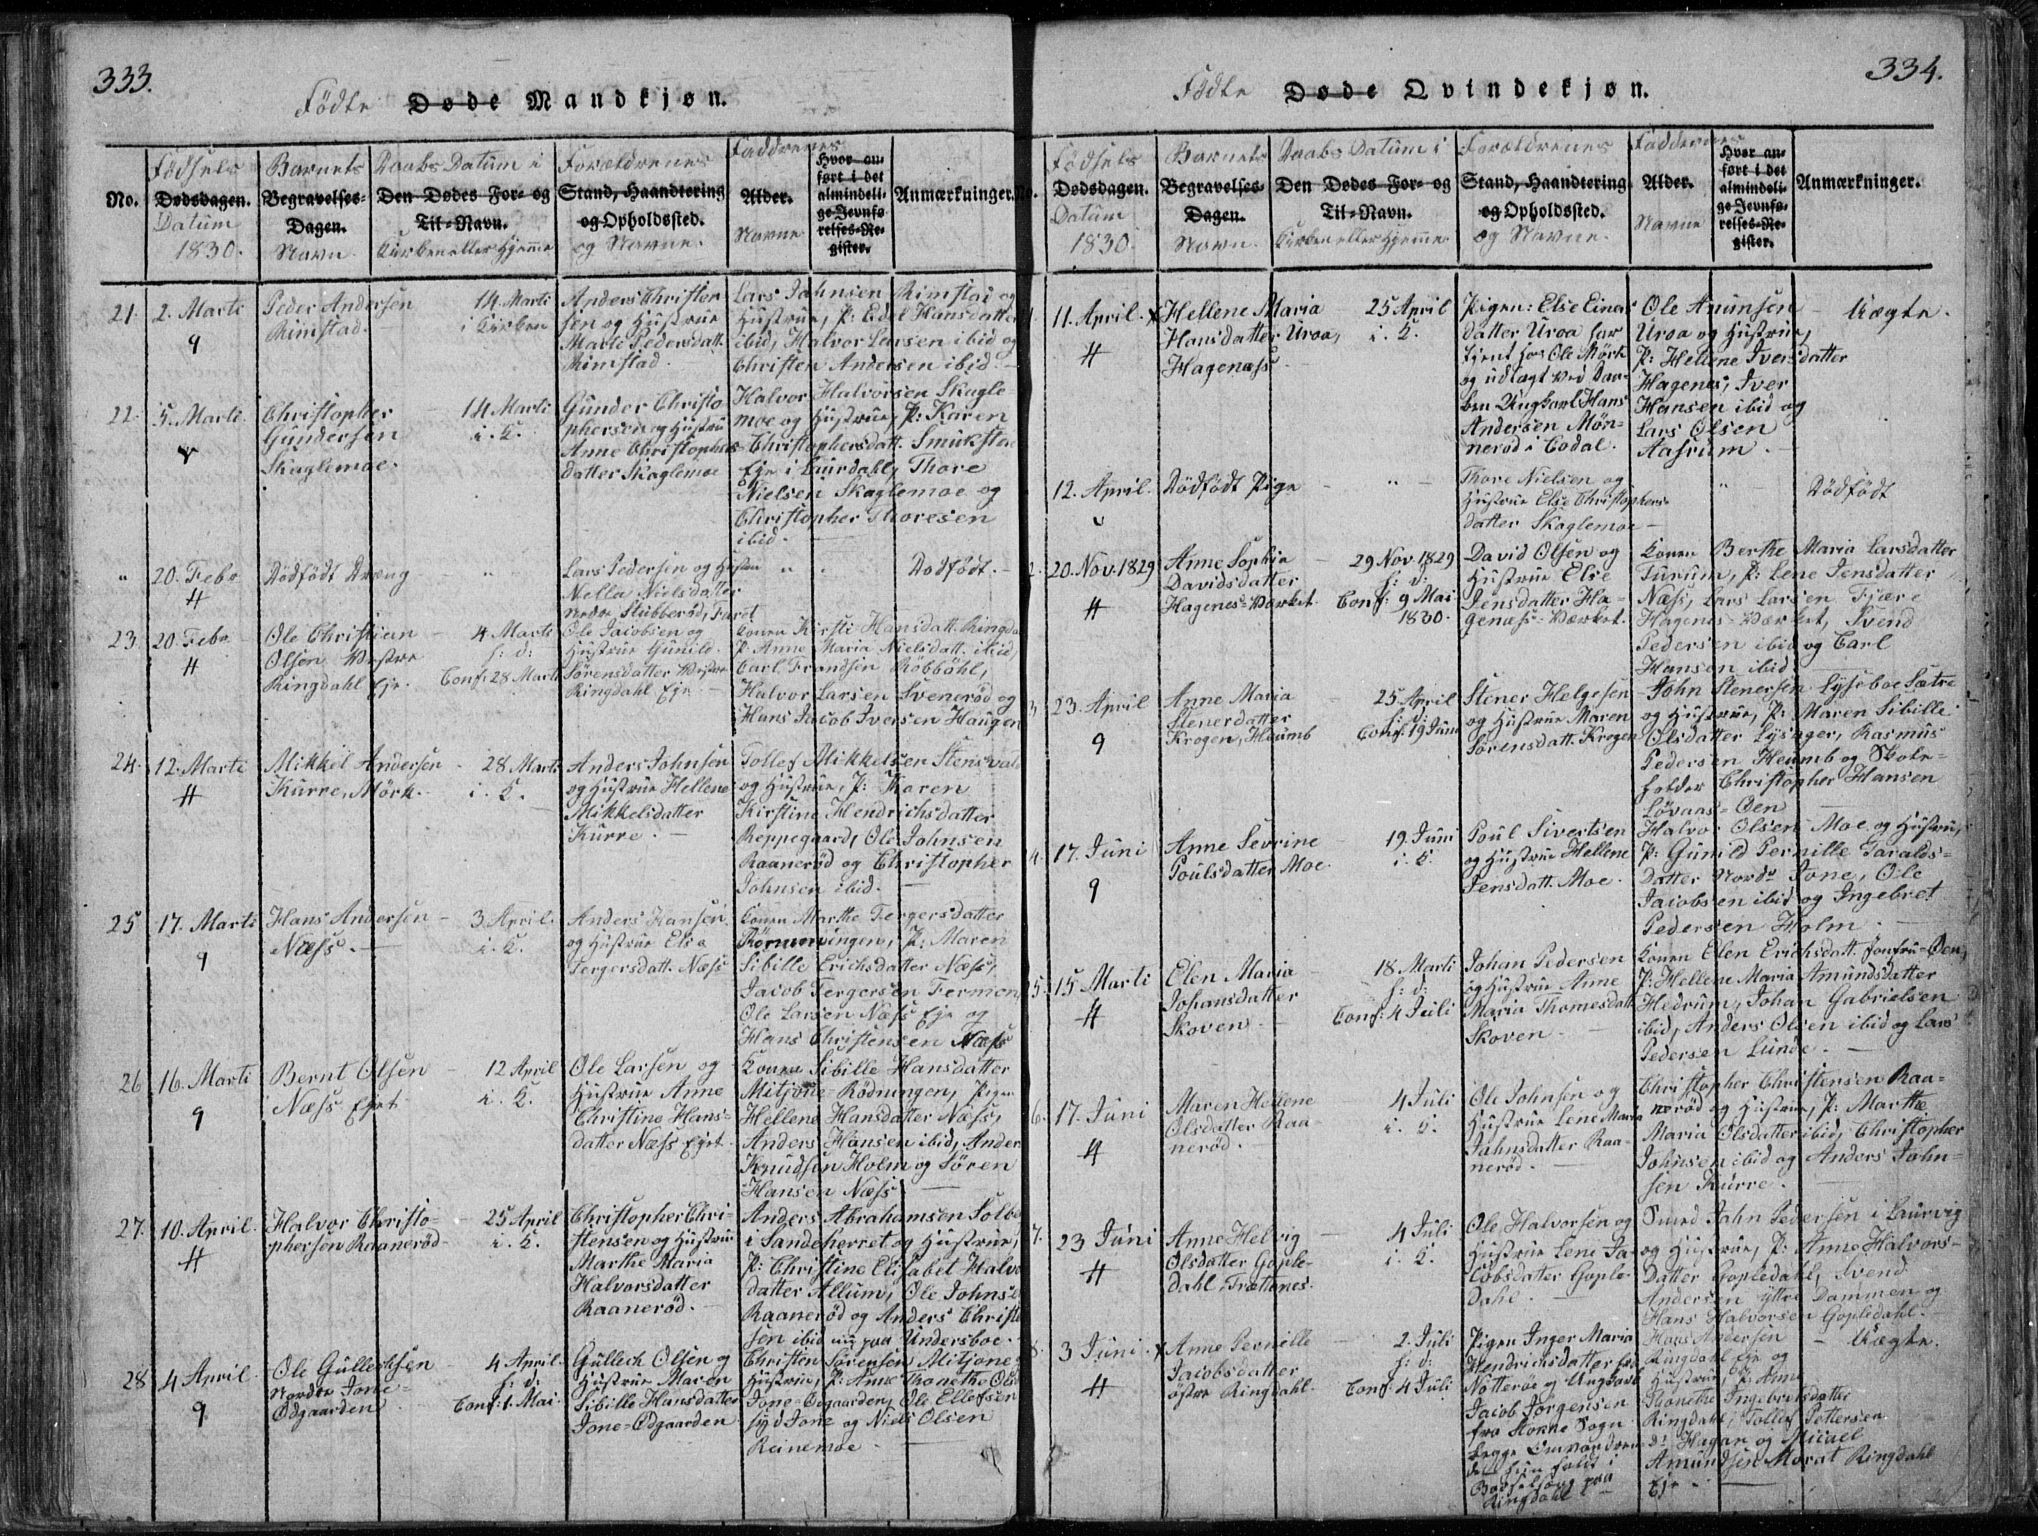 333.
Födte Døde Mandkjøn.
No.
Födsels
Dødsdagen.
Datum
1830.
Barnets
Begravelses-
Dagen.
Navn
Daabs Datum i
Den Dødes For- og
Til-Navn.
Kirken eller Hjemme
Forældrenes
Stand, Haandtering
og Opholdssted.
og Navne.
Faddrenes
Alder.
Navne
Hvor an-
ført i det
almindeli-
ge Jevnfø-
relses-Re-
gister.
Anmærkninger.
21.
2. Marti
9
Peder Andersen
Rimstad.
14 Marti
i Kirken
Anders Christen
sen og Hustrue
Marte Pedersdatt.
Rimstad.
Lars Jahnsen Rimstad og
Hustrue, P: Edel Hansdatter
ibid, Halvor Larsen ibid og
Christen Andersen ibid.
22.
5. Marti.
Christopher
Gundersen
Skaglemoe.
14 Marti
i. K.
Gunder Christo
phersen og Hustru
Anne Christophers
datter Skaglemoe
Halvor Halvorsen Skagle-
moe og Hustrue, P: Karen
Christophersdatt. Smukste
Eje i Laurdahl, Thore
Nielsen Skaglemoe og
Christopher Thoresen
ibid.
"
20. Febr
#
Dödfödt Dræng
"
Lars Pedersen og Hustru
Nella Nielsdatter
Nedre Stubberöd, Faret
"
Dödfödt.
23.
20. Febr
#
Ole Christian
Olsen Vestre
Ringdahl Eje.
4 Marti
h: d:
Conf: 28 Marti
Ole Jacobsen og
Hustrue Gunild
Sörensdatter Vestre
Ringdahl Eje.
Konen Kirsti Hansdatt. Ringda
P: Anne Maria Nielsdatt. ibid,
Carl Frandsen Röbböhl,
Halvor Larsen Sveneröd og
Hans Jacob Iversen Haugen
24.
12. Marti
#
Mikkel Andersen
Kurre, Mörk.
28 Marti
i. K.
Anders Johnsen
og Hustrue Hellene
Mikkelsdatter
Kurre.
Tollef Mikkelsen Stensvald
og Hustrue, P: Karen
Kirstine Hendrichsdatter
Reppegaard, Ole Johnsen
Raaneröd og Christopher
Johnsen ibid.
25
17. Marti
9
Hans Andersen
Næss.
3 April.
i. K.
Anders Hansen
og Hustrue Else
Tergersdatt. Næss
Konen Marthe Tergersdatter
P: Maren
Sibille Erichsdatter Næss,
Jacob Tergersen Fermen,
Ole Larsen Næss Eje og
Hans Christensen Næss
26
16. Marti
9
Bernt Olsen
Næss Ejet
12 April
i. K.
Ole Larsen og
Hustrue Anne
Christine Hans-
datter Næss Ejet
Konen Sibille Hansdatter
Mitjone-Rödningen, Pigen
Hellene Hansdatter Næss,
Anders Hansen ibid, Anders
Knudsen Holm og Sören
Hansen Næss
27.
10. April.
#
Halvor Christo-
phersen Raaneröd
25 April
i. K.
Christopher Chri-
stensen og Hustrue
Marthe Maria
Halvorsdatter
Raaneröd.
Anders Abrahamsen Solbe
i Sandeherret og Hustrue,
P: Christine Elisabet Halvo
datter Allum, Ole Johns
Raaneröd og Anders Christe
sen ibid nu paa Undersboe.
28
4 April.
9
Ole Gullechsen
Nordre Jone-
Ödgaarden
4 April.
h: d:
Conf: 1. Mai.
Gullech Olsen og
Hustrue Maren
Sibille Hansdatter
Jone-Ödgaarden
Christen Sörensen Mitjone
Hustrue, P: Anne Thonethe Ols
Jone-Ödgaarden, Ole Ellefsen
syd Jone og Niels Olsen
Reinemoe.
334.
Födte Døde Qvindekjøn.
No.
Födsels
Dødsdagen.
Datum
1830.
Barnets
Begravelses-
Dagen.
Navn.
Daabs Datum i
Den Dødes For- og
Til-Navn.
Kirken eller Hjemme
Forældrenes
Stand, Haandtering
og Opholdssted.
og Navne.
Faddrenes
Alder.
Navne
Hvor an-
ført i det
almindeli-
ge Jevnfø-
relses-Re-
gister.
Anmærkninger.
1.
11. April.
#
x Hellene Maria
Hansdatter Uroa,
Hagenæss
25 April
i. K.
Pigen: Else Einars
datter Uroa har
tjent hos Ole Mörk
og udlagt ved Daa-
ben Ungkarl Hans
Andersen Mön-
neröd i Codal.
Ole Amunsen
Uroa og Hustrue,
P: Hellene Iversdatter
Hagenes, Iver
Hansen ibid og
Lars Olsen
Aasrum.
Uægte.
12. April.
Dödfödt Pige
"
Thore Nielsen og
Hustrue Else Christophers
datter Skaglemoe
"
Dödfödt
2.
20. Nov. 1829
#
Anne Sophia
Davidsdatter
Hagenes-Værket.
29 Nov. 1829
h: d:
Conf: 9 Mai
1830.
David Olsen og
Hustrue Else
Jensdatter Ha-
genæss-Værket.
Konen Berthe Maria Larsdatter
Furum, P: Lene Jensdatter
Næss, Lars Larsen Fjære
Hagenes-Værket, Svend
Pedersen ibid og Carl
Hansen ibid
3
23. April
9
Anne Maria
Stenersdatter
Krogen, Heumb
25 April
h: d:
Conf: 19 Juni
Stener Helgesen
og Hustrue Maren
Sörensdatt. Krogen
John Stenersen Lyseboe Sætre
og Hustrue, P: Maren Sibille
Olsdatter Lysager, Rasmus
Pedersen Heumb og Skole-
holder Christopher Hansen
Lövaas-Öen
4.
17. Juni
9
Anne Sevrine
Poulsdatter Moe.
19. Juni
i. K.
Poul Sivertsen
og Hustrue Hellene
Jensdatt. Moe.
Halvor Olsen Moe og Hustru,
P: Gunild Pernille Taralds-
datter Nordr Jone, Ole
Jacobsen ibid og Ingebret
Pedersen Holm.
5.
15 Marti
#
Elen Maria
Johansdatter
Skoven.
18. Marti
h: d:
Conf: 4 Juli
Johan Pedersen
og Hustrue Anne
Maria Thomesdatt
Skoven.
Konen Elen Erichsdatt. Jomfru-Öen,
P: Hellene Maria Amundsdatter
Hedrum, Johan Gabrielsen
ibid, Anders Olsen ibid og Lars
Pedersen Lunde.
6.
17. Juni
#
Maren Hellene
Olsdatter Raa-
neröd.
4 Juli
i. K.
Ole Johnsen og
Hustrue Lene Maria
Jahnsdatter Raa-
neröd.
Christopher Christensen Raa-
neröd og Hustrue, P: Marthe
Maria Olsdatter ibid, Christopher
Johnsen ibid og Anders John-
sen Kurre.
7.
23 Juni
#
Anne Helvig
Olsdatter Gople-
dahl, Trættenes.
4 Juli
i. K.
Ole Halvorsen og
Hustrue Lene Ja-
cobsdatter Gople-
dahl.
Smed Jahn Pedersen i Laurvig
og Hustrue, P: Anne Halvors-
datter Gopledahl, Svend
Andersen yttre Dammen og
Hans Halvorsen Gopledahl.
8.
3 Juni
#
x Anne Pernille
Jacobsdatter
östre Ringdahl.
2. Juli
h: d:
Conf: 4 Juli
Pigen Inger Maria
Hendrichsdatter fra
Nötteröe og Ungkarl
Jacob Jörgensen
fra Stokke Sogn
begge Omvandrende
hun faldt i
Barselseng paa
Ringdahl
Hans Andersen
Ringdahl Eje og
Hustrue, P: Anne
Thonethe Ingebretsdatter
Ringdahl, Tollef Pettersen
Hagan og Micael
Amundsen Morat Ringdahl
Eje.
Uægte.